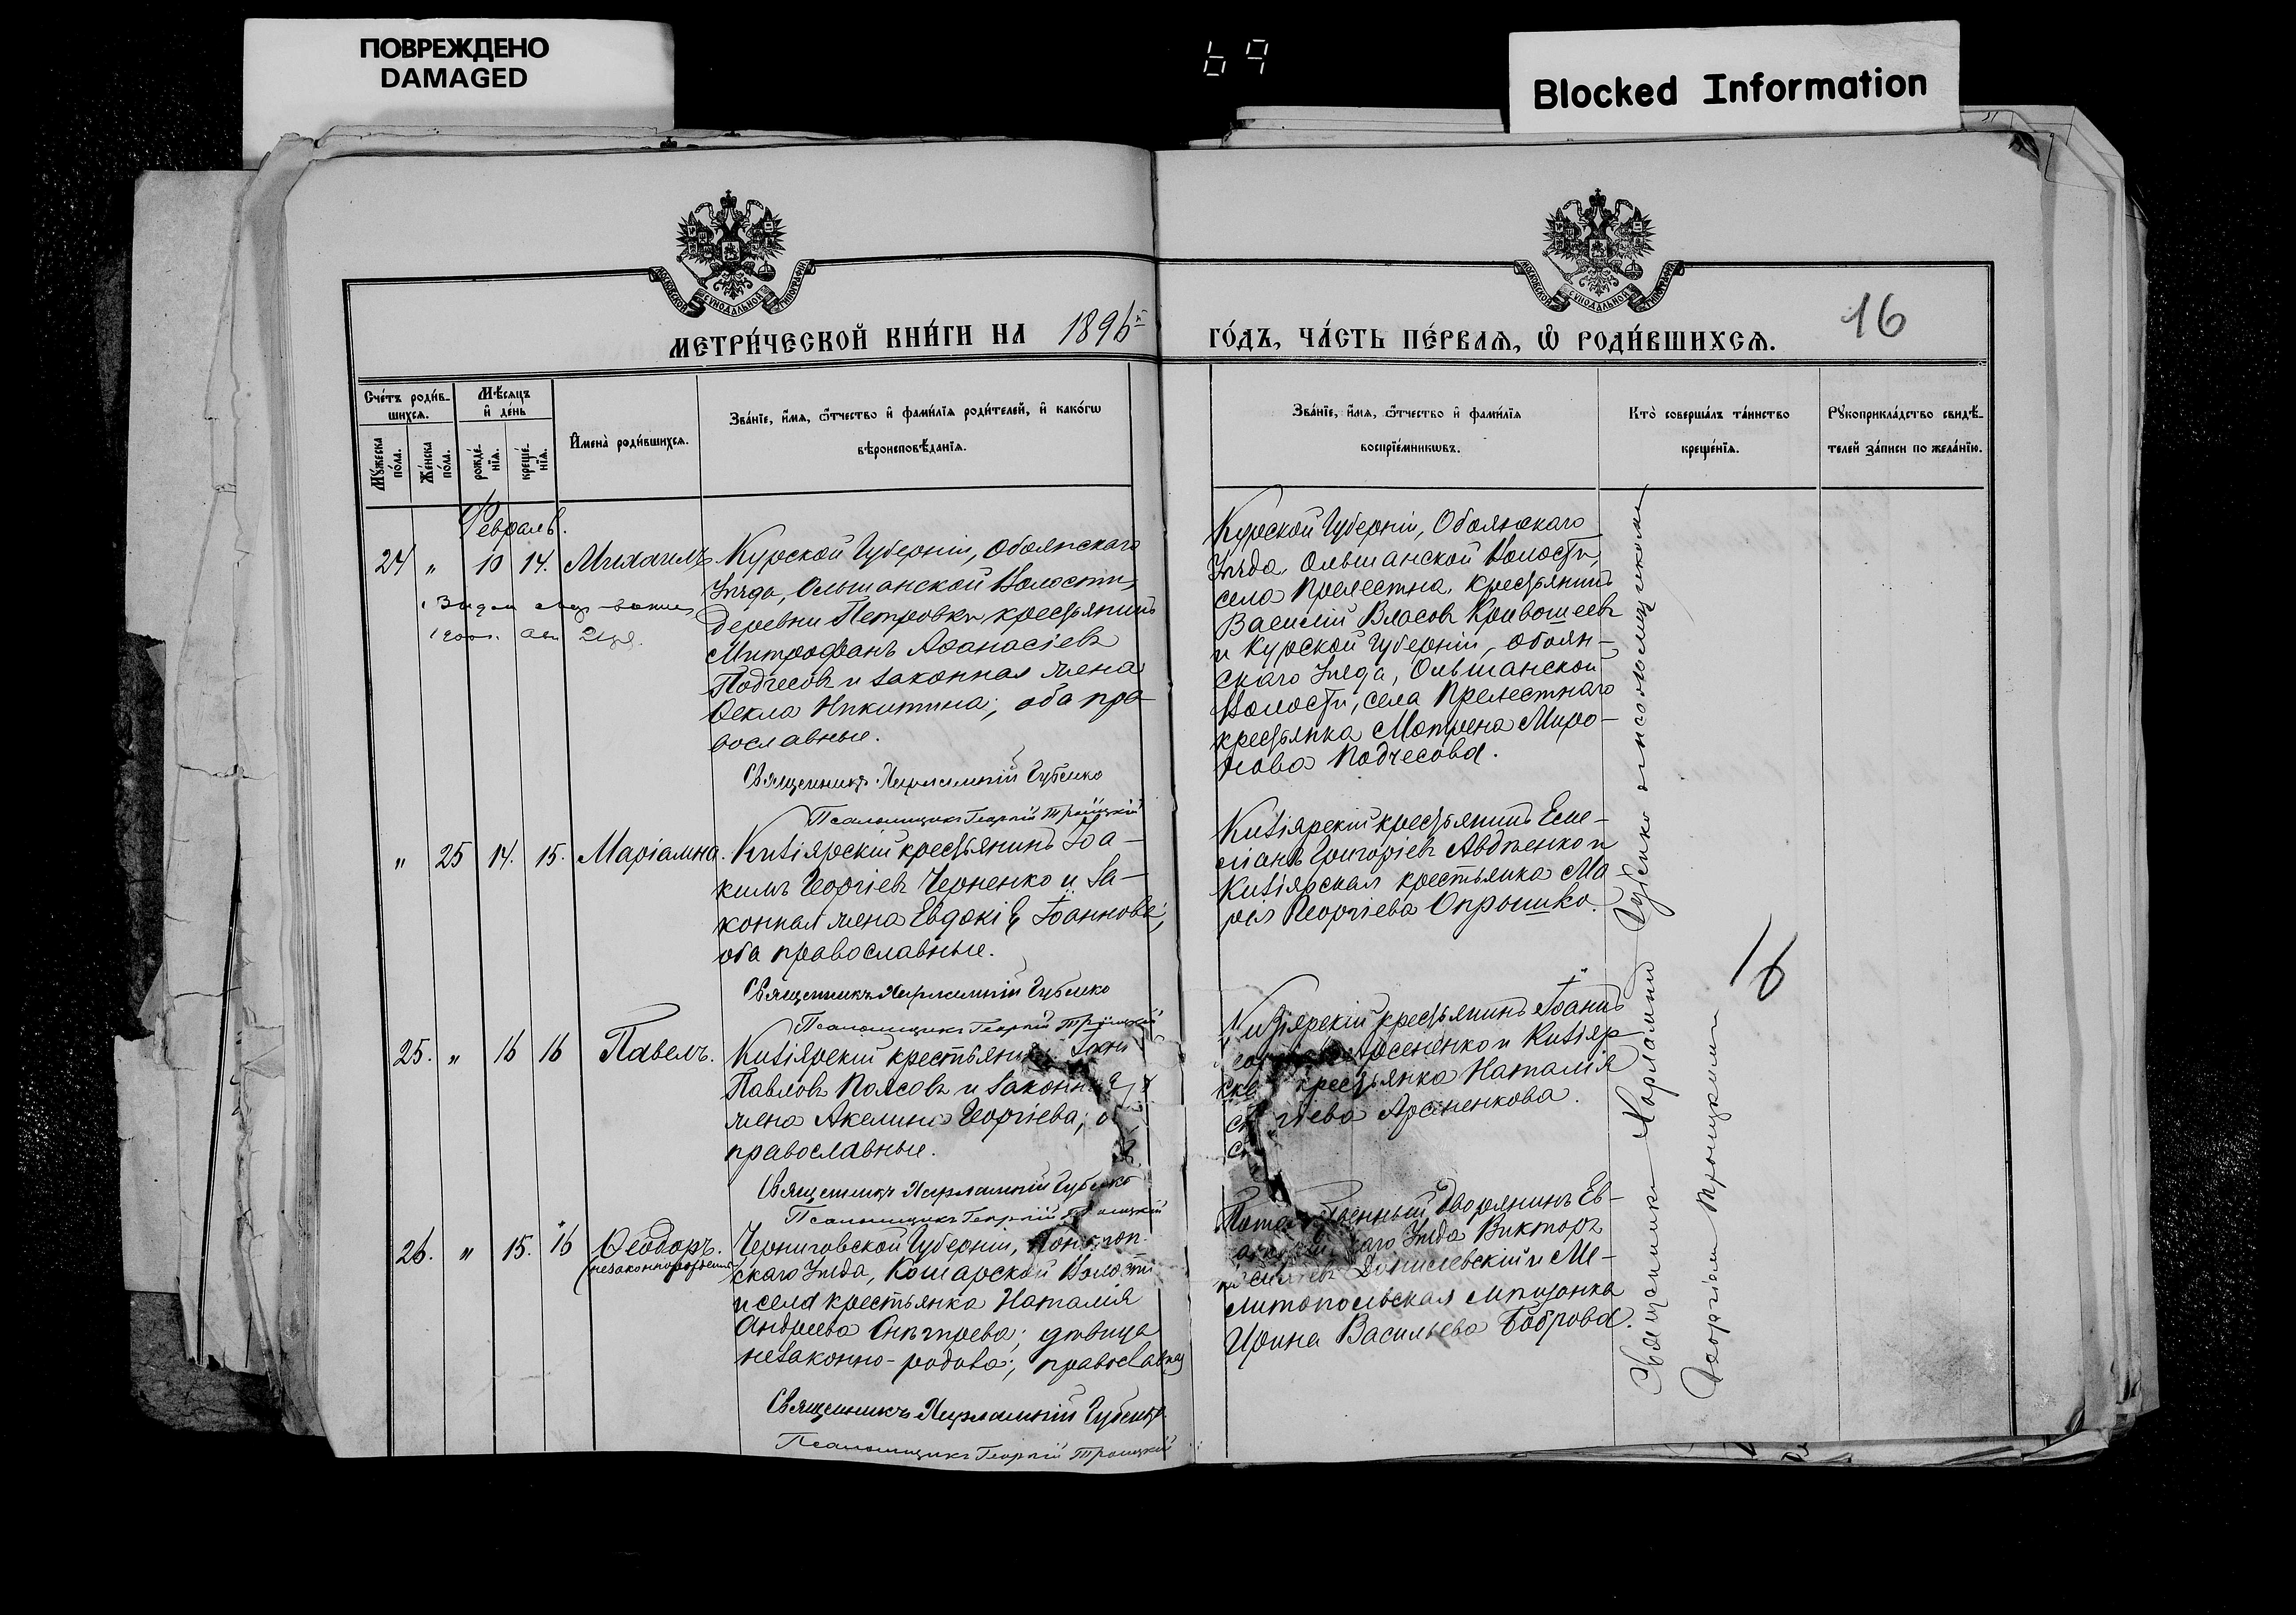 ПОВРЕЖДЕНО
DAMAGED
69
Blocked Information
МОСКОВСКОЙ СѴНОДАЛЬНОЙ ТИПОГРАФІИ
МОСКОВСКОЙ СѴНОДАЛЬНОЙ ТИПОГРАФІИ
МЕТРИ́ЧЕСКОЙ КНИ́ГИ НА 1896й
ГО́ДЪ, ЧА́СТЬ ПЕ́РВАѦ, Ѡ РОДИ́ВШИХСѦ.
16
Сче́тъ роди́в-
шихсѧ.
Мꙋ́жеска
по́ла.
Же́нска
по́ла.
Мѣ́сѧцъ
и҆ де́нь
рожде́-
нїѧ.
креще́-
нїѧ.
И҆мена̀ роди́вшихсѧ.
Зва́нїе, и҆́мѧ, ѻ҆́тчество и҆ фами́лїѧ роди́телей, и҆ како́гѡ
вѣроисповѣ́данїѧ.
Зва́нїе, и҆́мѧ, ѻ҆́тчество и҆ фами́лїѧ
воспрїе́мникѡвъ.
Кто̀ соверша́лъ та́инство
креще́нїѧ.
Рꙋкоприкла́дство свидѣ́-
телей за́писи по жела́нїю.
Февраль.
24 " 10 14. Михаилъ
Курской Губерніи, Обоянскаго
Уѣзда, Ольшанской Волости,
деревни Петровки крестьянинъ
Митрофанъ Аѳанасіевъ
Подчесовъ и законная жена
Ѳекла Никитина; оба пра-
вославные.
Священникъ Харлампій Губенко
Псаломщикъ Георгій Троицкій
Курской Губерніи, Обоянскаго
Уѣзда, Ольшанской Волости,
села Прелестна, крестьянинъ
Василій Власовъ Кривошеевъ
и Курской Губерніи, Обоян-
скаго Уѣзда, Ольшанской
Волости, села Прелестнаго
крестьянка Матрена Миро-
нова Подчесова.
" 25 14. 15. Маріамна.
Кизіярскій крестьянинъ Іоа-
кимъ Георгіевъ Черненко и за-
конная жена Евдокія Іоаннова;
оба православные.
Священникъ Харлампій Губенко
Псаломщикъ Георгій Троицкій
Кизіярскій крестьянинъ Еме-
ліанъ Григоріевъ Авдѣенко и
Кизіярская крестьянка Ма
рія Георгіева Опрышко.
25. " 16 16 Павелъ.
Кизіярскій крестьянинъ
Павловъ Полсовъ и законная
жена Акелина Георгіева; о
православные.
Священникъ Харлампій Губенко
Псаломщикъ Георгій Троицкій
Кизіярскій крестьянинъ Іоаннъ
и Кизіяр
крестьянка Наталія
Арсененкова.
26. " 15. 16 Ѳеодоръ.
незаконнорожденный
Черниговской Губерніи, Конотоп-
скаго Уѣзда, Кошарской Волости
и села крестьянка Наталія
Андреева Снѣгирева; дѣвица
незаконно-родова; православная
Священникъ Харлампій Губенко
Псаломщикъ Георгій Троицкій
дворянинъ Ев-
Уѣзда Викторъ
Данилевскій и Ме-
литопольская мѣщанка
Ирина Васильева Боброва.
Священникъ Харлампій Губенко съ псаломщикомъ
Георгіемъ Троицкимъ
16